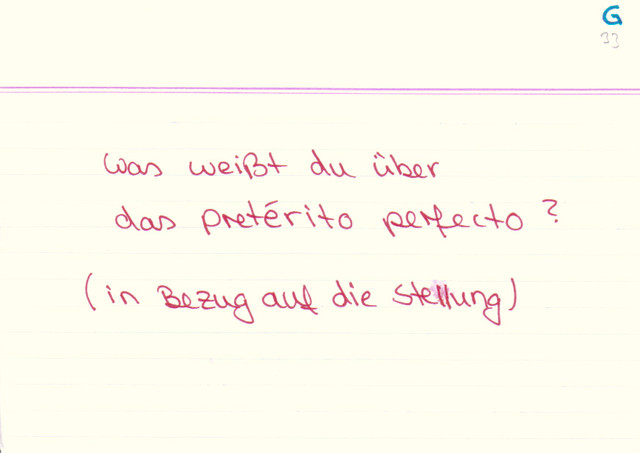 G
33
was weißt du über
das pretérito perfecto?
(in Bezug auf die Stellung)